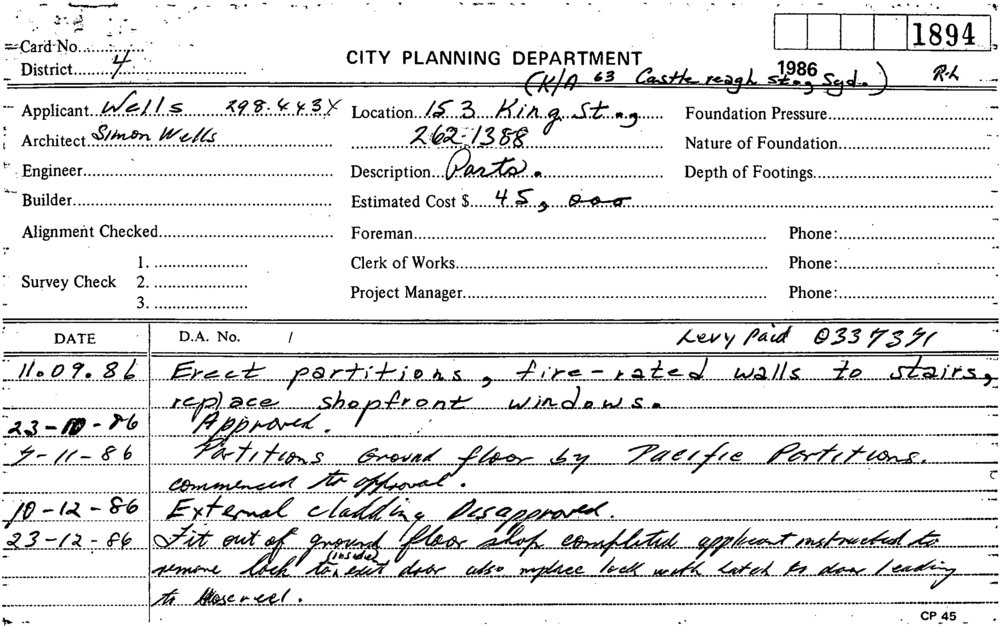 1894
Card No.
CITY PLANNING DEPARTMENT
1986
District 4
(K/A 63 Castlereagh St., Syd.)
R-L
Applicant Wells 298.443X
Location 153 King St.,
Foundation Pressure
Architect Simon Wells
262-1388
Nature of Foundation
Engineer
Description Parts.
Depth of Footings
Builder
Estimated Cost $ 45,000
Alignment Checked
Foreman
Phone:
1.
Clerk of Works
Phone:
Survey Check 2.
Project Manager
Phone:
3.
DATE
D.A. No. /
Levy Paid 0337371
11.09.86 Erect partitions, fire-rated walls to stairs,
replace shopfront windows.
23-10-86 Approved.
7-11-86 Partitions Ground floor by Pacific Partitions.
commenced to approval.
10-12-86 External cladding Disapproved.
23-12-86 Fit out of ground floor shop completed applicant instructed to
remove lock to (inside) exit door also replace lock with latch to door leading
to Hosereel.
CP 45